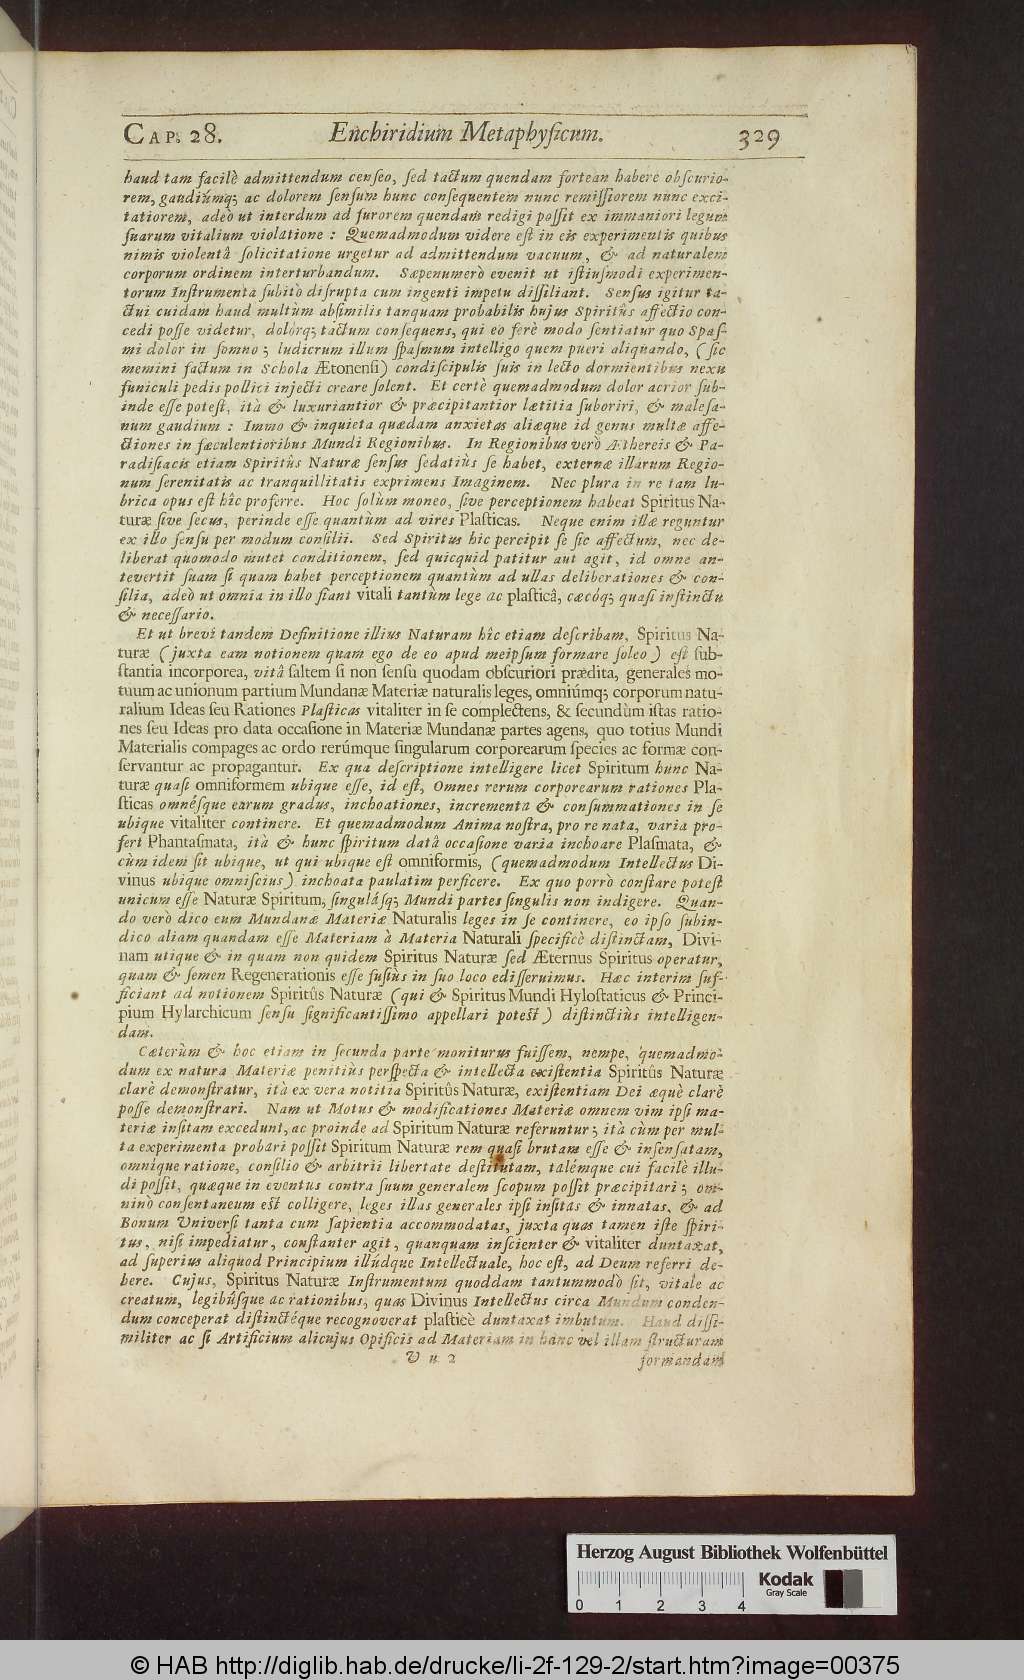 CAP. 28. Enchiridium Metaphyſicum. 329
haud tam facilè admittendum cenſeo, ſed tactum quendam fortean habere obſcurio-
rem, gaudiúmq; ac dolorem ſenſum hunc conſequentem nunc remiſſiorem nunc exci-
tatiorem, adeò ut interdum ad furorem quendam redigi poſſit ex immaniori legum
ſuarum vitalium violatione : Quemadmodum videre eſt in eis experimentis quibus
nimis violentâ ſolicitatione urgetur ad admittendum vacuum, & ad naturalem
corporum ordinem interturbandum. Sæpenumerò evenit ut iſtiuſmodi experimen-
torum Inſtrumenta ſubitò diſrupta cum ingenti impetu diſſiliant. Senſus igitur ta-
ctui cuidam haud multùm abſimilis tanquam probabilis hujus Spiritûs affectio con-
cedi poſſe videtur, dolórq; tactum conſequens, qui eo ferè modo ſentiatur quo Spaſ-
mi dolor in ſomno ; ludicrum illum ſpaſmum intelligo quem pueri aliquando, (ſic
memini factum in Schola Ætonenſi) condiſcipulis ſuis in lecto dormientibus nexu
funiculi pedis pollici injecti creare ſolent. Et certè quemadmodum dolor acrior ſub-
inde eſſe poteſt, ità & luxuriantior & præcipitantior lætitia ſuboriri, & maleſa-
num gaudium : Immo & inquieta quædam anxietas aliæque id genus multæ affe-
ctiones in fæculentioribus Mundi Regionibus. In Regionibus verò Æthereis & Pa-
radiſiacis etiam Spiritûs Naturæ ſenſus ſedatiùs ſe habet, externæ illarum Regio-
num ſerenitatis ac tranquillitatis exprimens Imaginem. Nec plura in re tam lu-
brica opus eſt hîc proferre. Hoc ſolùm moneo, ſive perceptionem habeat Spiritus Na-
turæ ſive ſecus, perinde eſſe quantùm ad vires Plaſticas. Neque enim illæ reguntur
ex illo ſenſu per modum conſilii. Sed Spiritus hic percipit ſe ſic affectum, nec de-
liberat quomodo mutet conditionem, ſed quicquid patitur aut agit, id omne an-
tevertit ſuam ſi quam habet perceptionem quantùm ad ullas deliberationes & con-
ſilia, adeò ut omnia in illo fiant vitali tantùm lege ac plaſticâ, cæcóq; quaſi inſtinctu
& neceſſario.
Et ut brevi tandem Definitione illius Naturam hîc etiam deſcribam, Spiritus Na-
turæ (juxta eam notionem quam ego de eo apud meipſum formare ſoleo) eſt ſub-
ſtantia incorporea, vitâ ſaltem ſi non ſenſu quodam obſcuriori prædita, generales mo-
tuum ac unionum partium Mundanæ Materiæ naturalis leges, omniúmq; corporum natu-
ralium Ideas ſeu Rationes Plaſticas vitaliter in ſe complectens, & ſecundùm iſtas ratio-
nes ſeu Ideas pro data occaſione in Materiæ Mundanæ partes agens, quo totius Mundi
Materialis compages ac ordo rerúmque ſingularum corporearum ſpecies ac formæ con-
ſervantur ac propagantur. Ex qua deſcriptione intelligere licet Spiritum hunc Na-
turæ quaſi omniformem ubique eſſe, id eſt, Omnes rerum corporearum rationes Pla-
ſticas omnéſque earum gradus, inchoationes, incrementa & conſummationes in ſe
ubique vitaliter continere. Et quemadmodum Anima noſtra, pro re nata, varia pro-
fert Phantaſmata, ità & hunc ſpiritum datâ occaſione varia inchoare Plaſmata, &
cùm idem ſit ubique, ut qui ubique eſt omniformis, (quemadmodum Intellectus Di-
vinus ubique omniſcius) inchoata paulatim perficere. Ex quo porrò conſtare poteſt
unicum eſſe Naturæ Spiritum, ſingulâſq; Mundi partes ſingulis non indigere. Quan-
do verò dico eum Mundanæ Materiæ Naturalis leges in ſe continere, eo ipſo ſubin-
dico aliam quandam eſſe Materiam à Materia Naturali ſpecificè diſtinctam, Divi-
nam utique & in quam non quidem Spiritus Naturæ ſed Æternus Spiritus operatur,
quam & ſemen Regenerationis eſſe fuſiùs in ſuo loco ediſſeruimus. Hæc interim ſuf-
ficiant ad notionem Spiritûs Naturæ (qui & Spiritus Mundi Hyloſtaticus & Princi-
pium Hylarchicum ſenſu ſignificantiſſimo appellari poteſt) diſtinctiùs intelligen-
dam.
Cæterùm & hoc etiam in ſecunda parte moniturus fuiſſem, nempe, quemadmo-
dum ex natura Materiæ penitiùs perſpecta & intellecta exiſtentia Spiritûs Naturæ
clarè demonſtratur, ità ex vera notitia Spiritûs Naturæ, exiſtentiam Dei æquè clarè
poſſe demonſtrari. Nam ut Motus & modificationes Materiæ omnem vim ipſi ma-
teriæ inſitam excedunt, ac proinde ad Spiritum Naturæ referuntur ; ità cùm per mul-
ta experimenta probari poſſit Spiritum Naturæ rem quaſi brutam eſſe & inſenſatam,
omníque ratione, conſilio & arbitrii libertate deſtitutam, talémque cui facilè illu-
di poſſit, quæque in eventus contra ſuum generalem ſcopum poſſit præcipitari ; om-
ninò conſentaneum eſt colligere, leges illas generales ipſi inſitas & innatas, & ad
Bonum Univerſi tanta cum ſapientia accommodatas, juxta quas tamen iſte ſpiri-
tus, niſi impediatur, conſtanter agit, quanquam inſcienter & vitaliter duntaxat,
ad ſuperius aliquod Principium illúdque Intellectuale, hoc eſt, ad Deum referri de-
bere. Cujus, Spiritus Naturæ Inſtrumentum quoddam tantummodò ſit, vitale ac
creatum, legibúſque ac rationibus, quas Divinus Intellectus circa Mundum conden-
dum conceperat diſtinctéque recognoverat plaſticè duntaxat imbutum. Haud diſſi-
militer ac ſi Artificium alicujus Opificis ad Materiam in hanc vel illam ſtructuram
U u 2 formandam
Herzog August Bibliothek Wolfenbüttel
Kodak
Gray Scale
0 1 2 3 4
© HAB http://diglib.hab.de/drucke/li-2f-129-2/start.htm?image=00375